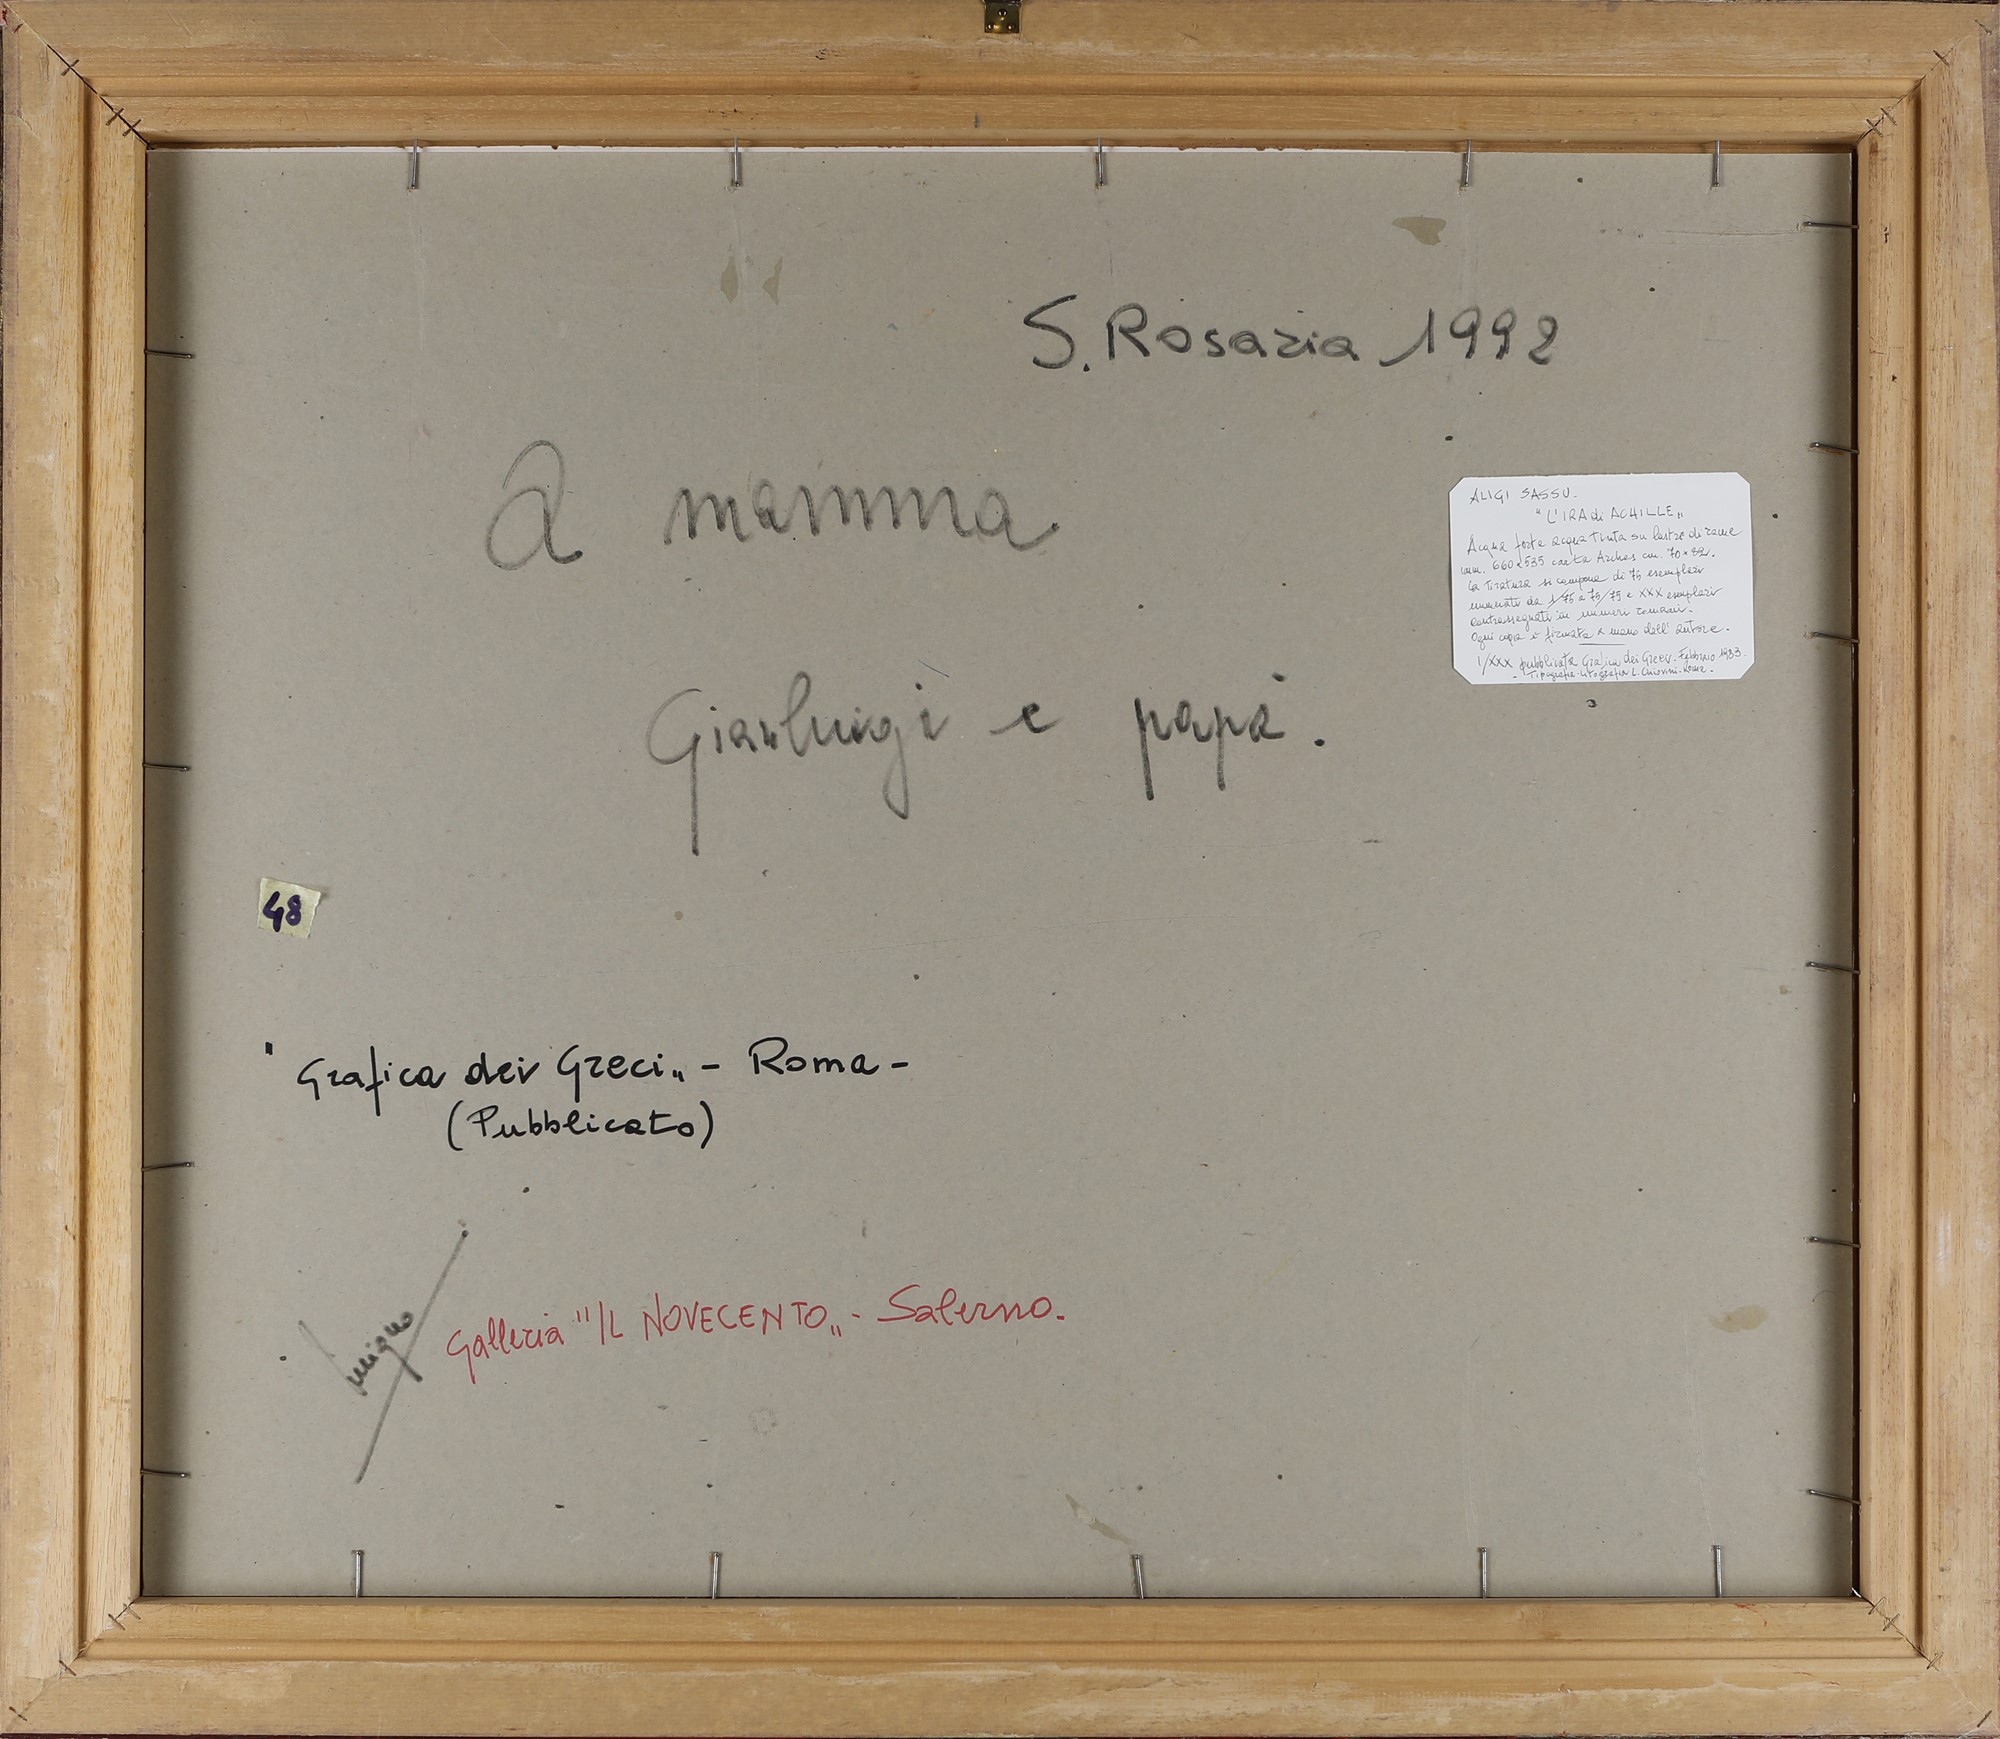 S. Rosaria 1992
A mamma
Gianluigi e papà.
ALIGI SASSU.
"L'IRA di ACHILLE„
Acqua forte acqua tinta su lastra di rame
mm. 660x535 carta Arches cm. 70x82.
La Tiratura si compone di 75 esemplari
numerati da 1/75 a 75/75 e XXX esemplari
contrassegnati in numeri romani.
Ogni copia è firmata a mano dell'autore.
1/XXX pubblicata Grafica dei Greci. Febbraio 1983.
- Tipografia-Litografia L. Chiovini-Roma-
48
"Grafica dei Greci„ - Roma -
(Pubblicato)
Galleria "IL NOVECENTO„ - Salerno.